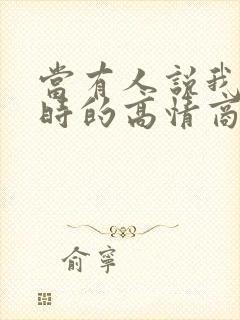 當有人說我
時的高情商
俞寧